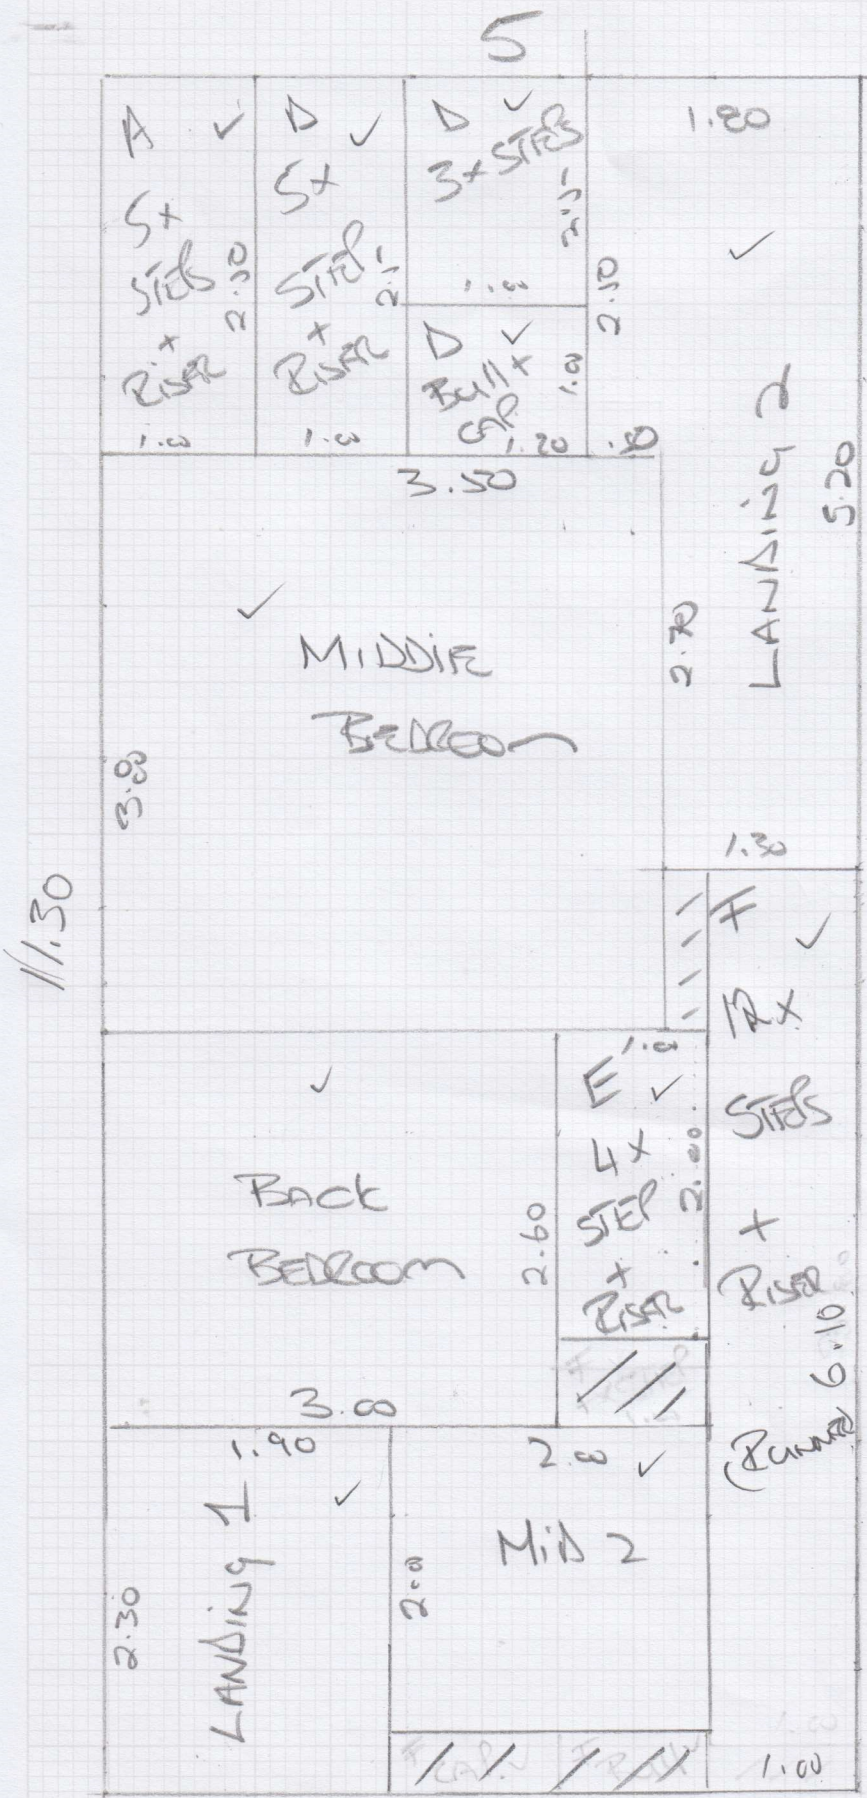 5
A ✓
5x
STEPS
+
RISER
2.50
1.00
D ✓
5x
STEP
+
RISER
1.00
D ✓
3x STEPS
1.20
D ✓
Bull x
CAP.
1.00
1.20
1.80
✓
2.50
.50
LANDING 2
5.20
3.50
✓
MIDDLE
BEDROOM
3.80
2.70
1.30
11.30
F ✓
12 x
STEPS
+
RISER
(RUNNER 6.10
1.00
✓
BACK
BEDROOM
2.60
3.00
1.00
E ✓
4x
STEP
+
RISER
2.00
1.90
✓
LANDING 1
2.30
2.00 ✓
MID 2
2.00